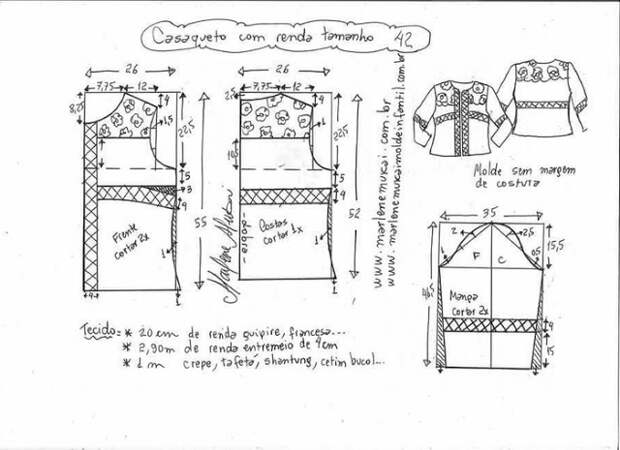 Casaqueto com renda tamanho 42
26
7,75 12
8,75
4
1,5
22,5
5
3
4
55
1
Frente
cortar 2x
4
1
26
7,75 12
2,5
4
1
22,5
5
4
52
1
Costas
cortar 1x
-dobra-
1
Marlene Mukai
www.marlenemukai.com.br
www.marlenemukaimoldeinfantil.com.br
Molde sem margem
de costura
35
2 2,5
1 0,5
15,5
F C
46,5
Manga
cortar 2x
4
15
1 1
Tecido= * 20 cm de renda guipire, francesa...
* 2,90m de renda entremeio de 4cm
* 1 m crepe, tafetá, shantung, cetim bucol...